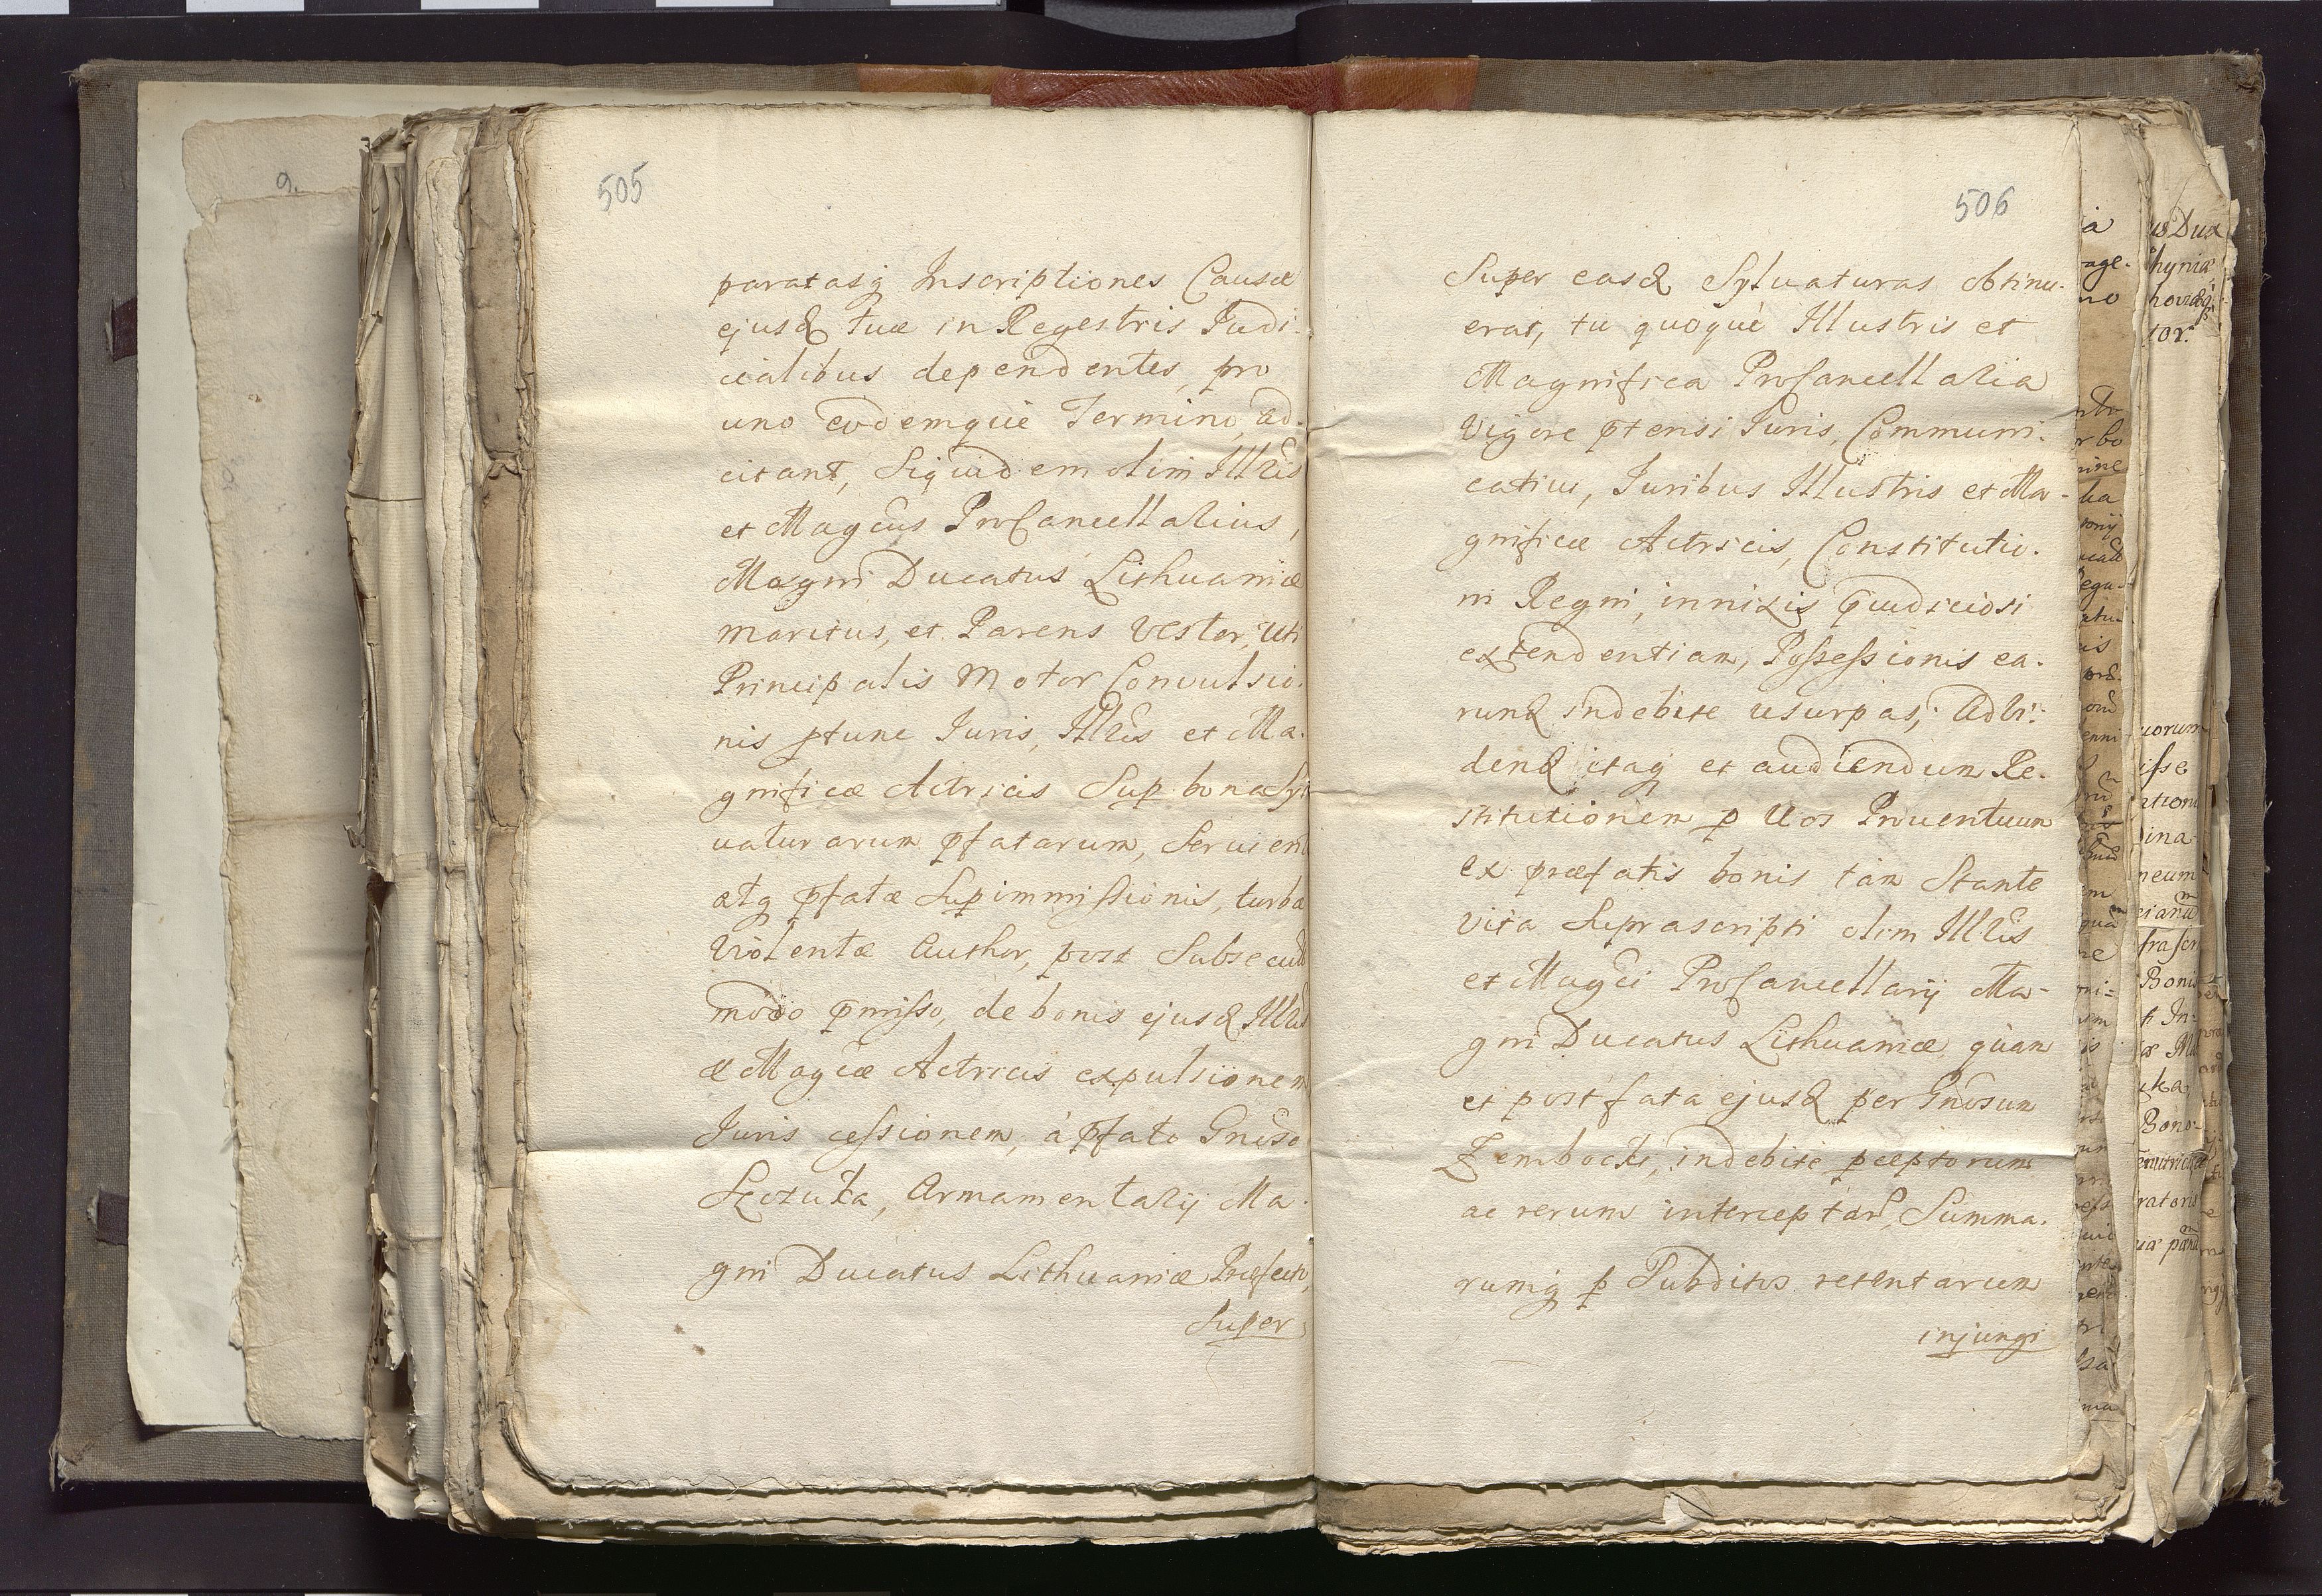 505
paratasq Inscriptiones Causæ
ejusd tuæ in Regestris Iudi-
cialibus dependentes, pro
uno eodemque Termino, ad-
citant, Siquidem olim Illris
et Magcus ProCancellarius,
Magni Ducatus Lithuaniæ
maritus, et Parens Vester, uti
Principalis Motor Convulsio-
nis ptunc Iuris, Illris et Ma-
gnificæ Actricis Sup bona Syl
uaturarum pfatarum, Seruien
atq pfatæ Sup immissionis, turbæ
Violentæ Author, post Subsecut
modo pmisso, de bonis ejusd Illris
æ Magcæ Actricis expulsionem
Iuris cessionem, à pfato Gnoso
Szczuka, Armamentarij Ma-
gni Ducatus Lithuaniæ Præfecto,
Super
506
Super easd Syluaturas obtinu-
erat, tu quoque Illustris et
Magnifica ProCancellaria
Vigore ptensi Iuris, Communi-
catiui, Iuribus Illustris et Ma-
gnificæ Actricis, Constitutio-
ni Regni, innixis pjudiciosi
extendentiam, Possessionis ea-
rund indebite usurpas, Ad vi-
dend itaq et audiendum Re-
stitutionem p Vos Prouentuum
ex præfatis bonis tam Stante
vita Suprascripti olim Illris
et Magci ProCancellarij Ma-
gni Ducatus Lithuaniæ, quam
et post fata ejusd per Gnosum
Zembocki, indebite pceptorum
ac rerum interceptar, Summa-
rumq p Subditos retentarum
injungi